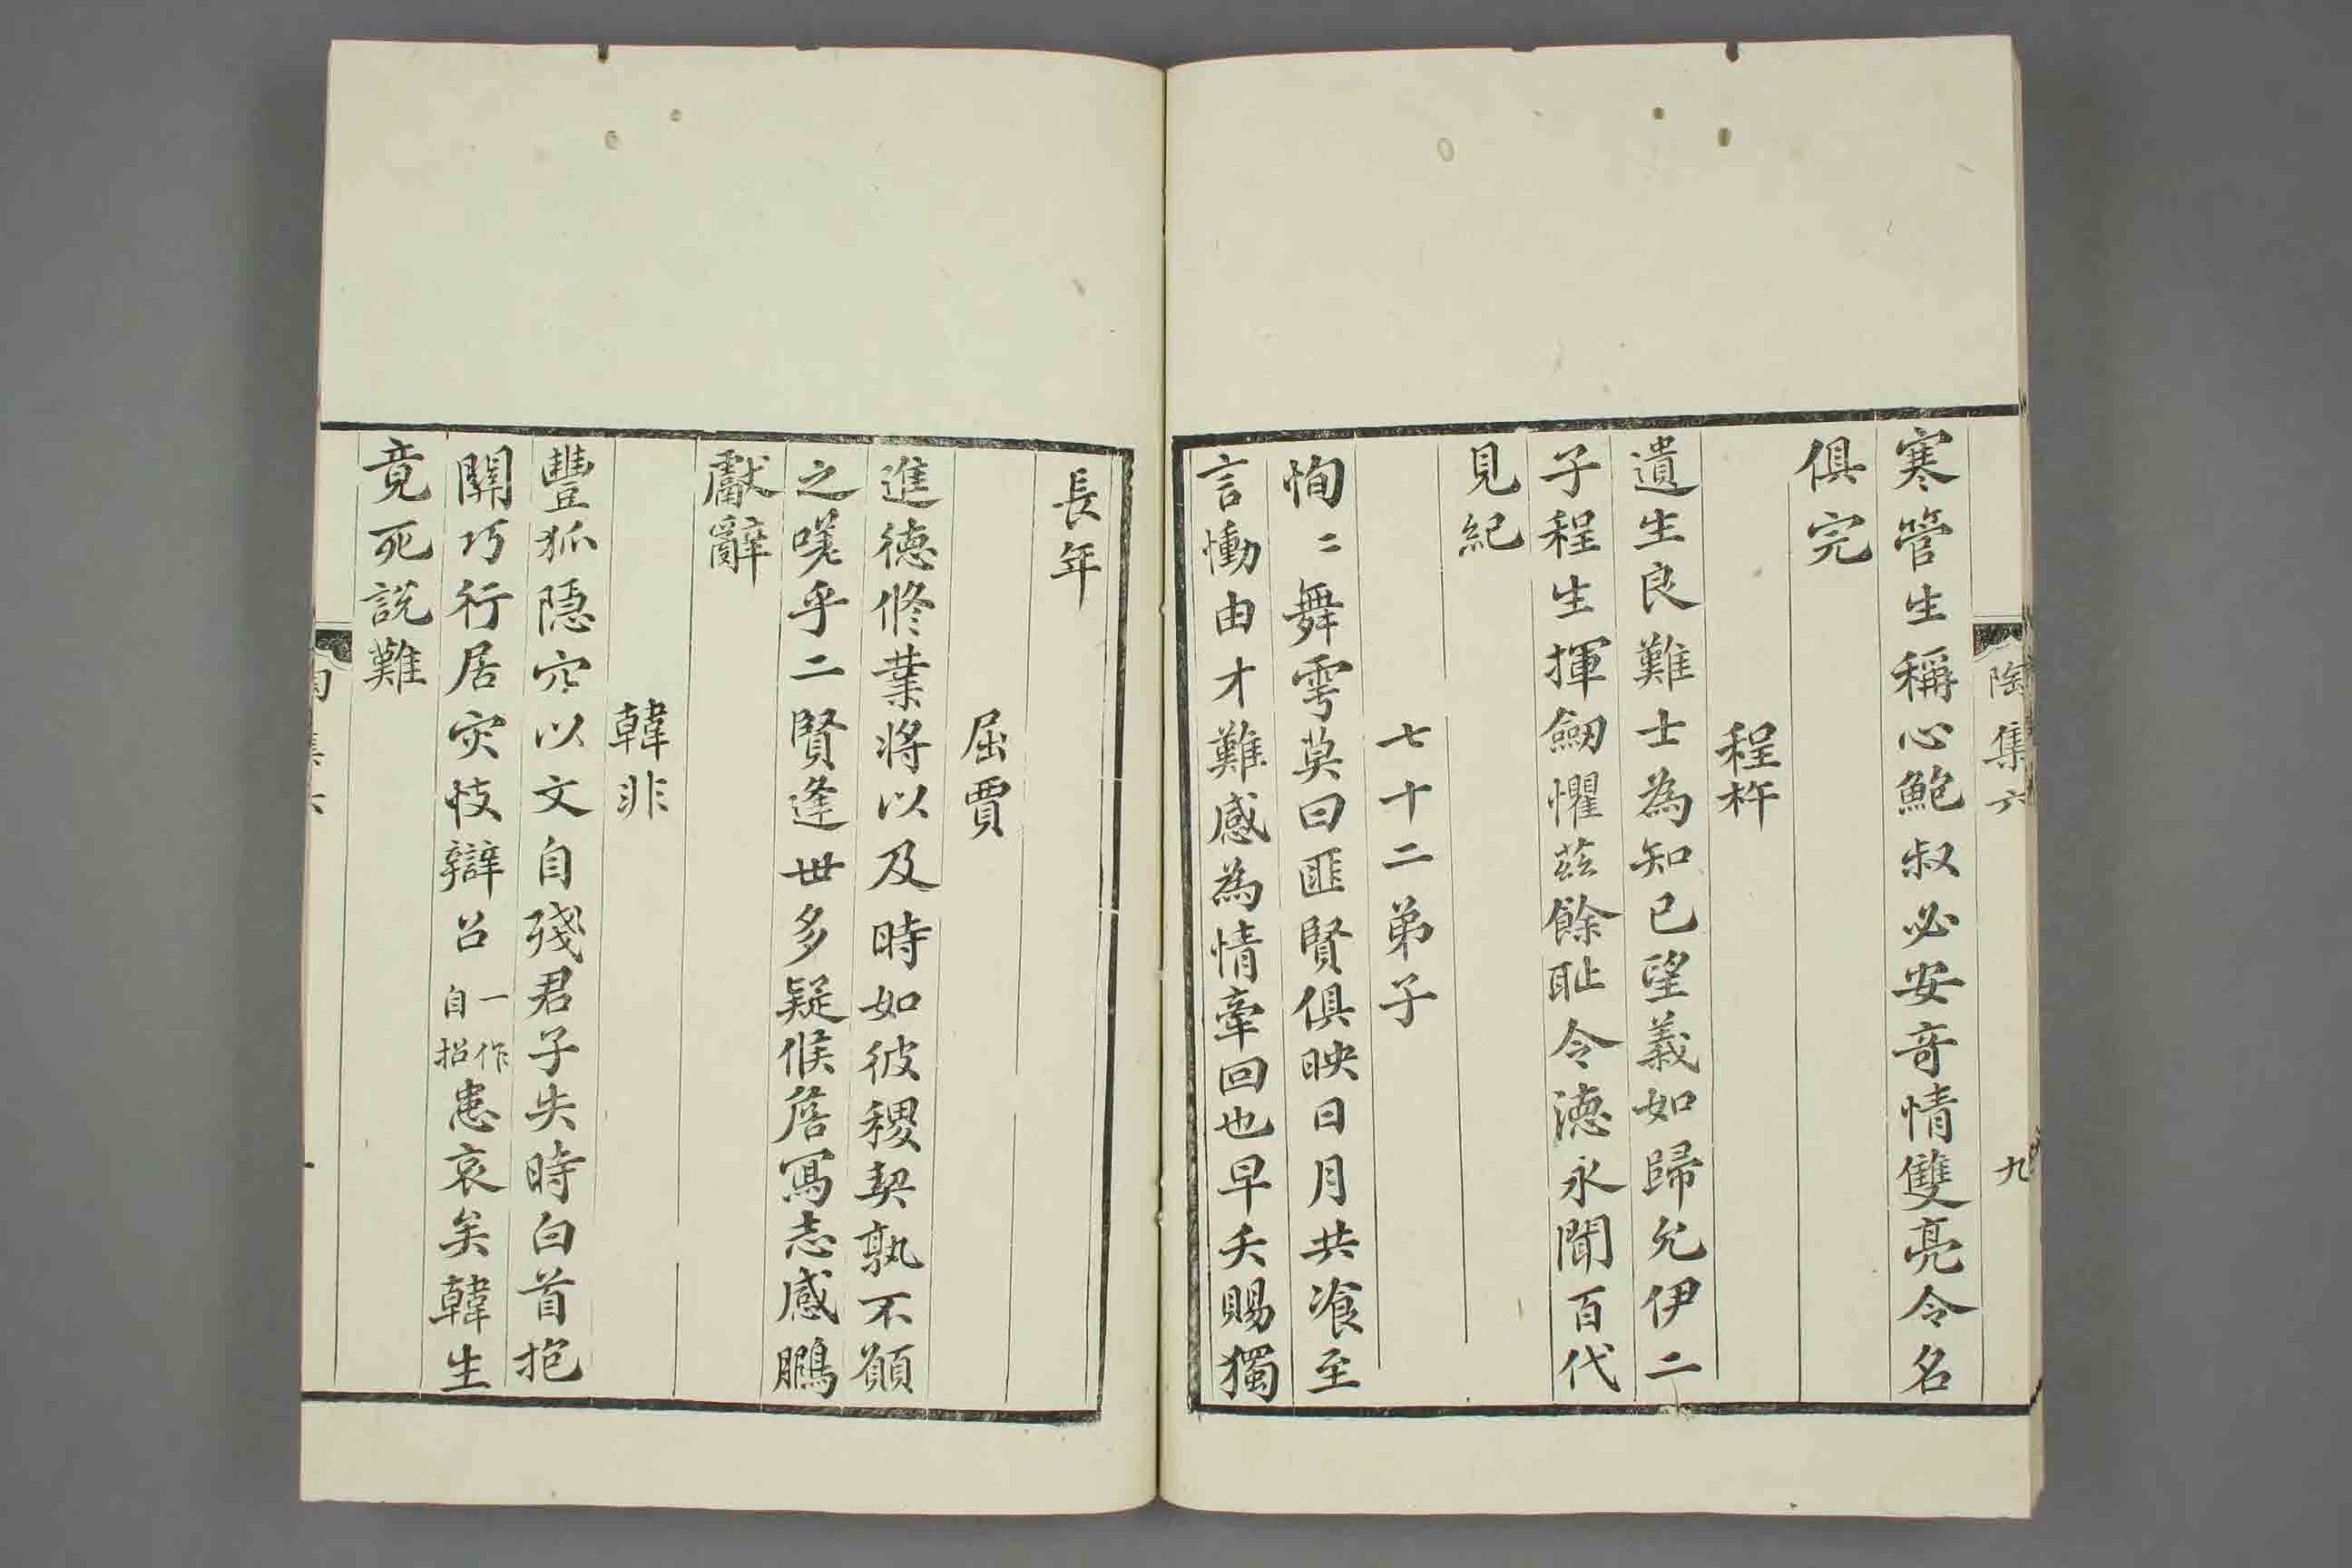 陶集六
九
寒管生稱心鮑叔必安奇情雙亮令名
俱完
程杵
遺生良難士為知己望義如歸允伊二
子程生揮劒懼茲餘恥令德永聞百代
見紀
七十二弟子
恂〻舞雩莫曰匪賢俱映日月共飡至
言慟由才難感為情牽回也早夭賜獨
長年
屈賈
進德修業將以及時如彼稷契孰不願
之嗟乎二賢逢世多疑候詹寫志感鵩
獻辭
韓非
豐狐隱穴以文自殘君子失時白首抱
關巧行居灾忮辯召一作自招患哀矣韓生
竟死說難